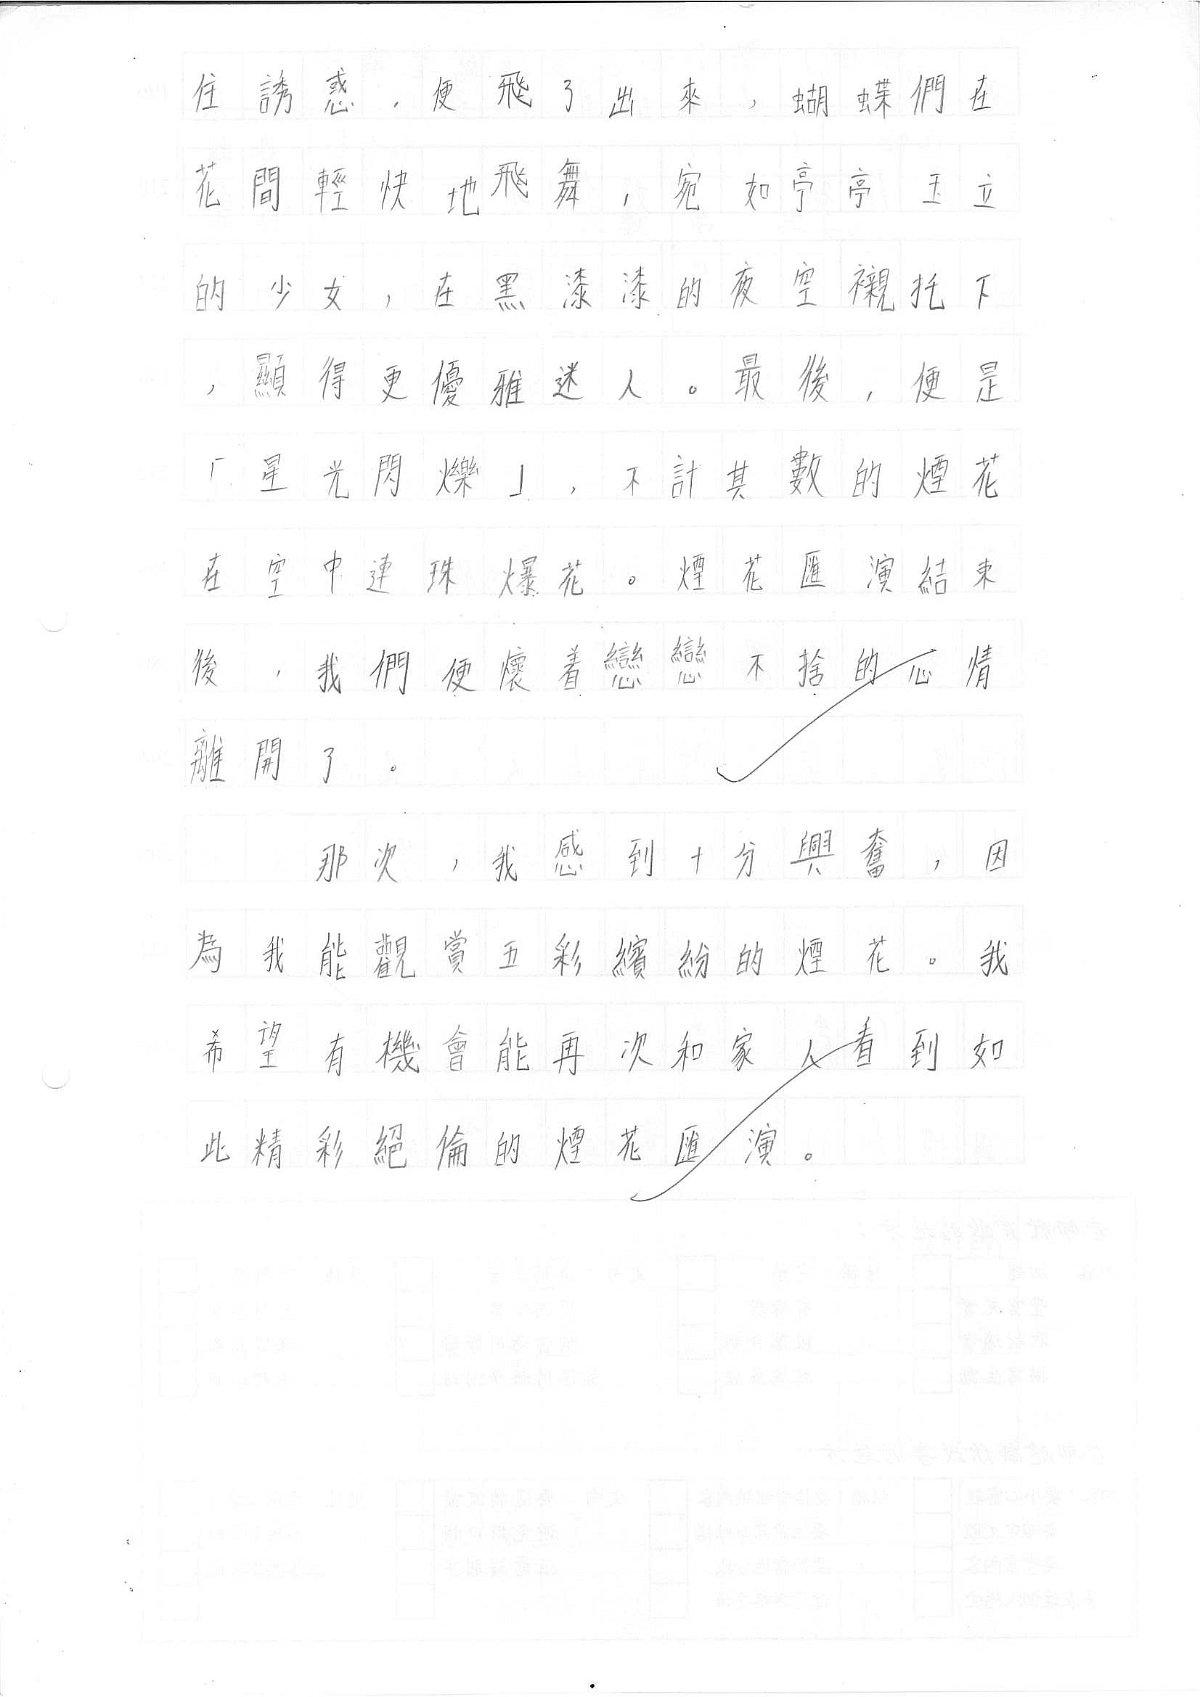 住誘惑，便飛了出來，蝴蝶們在
花間輕快地飛舞，宛如亭亭玉立
的少女，在黑漆漆的夜空襯托下
，顯得更優雅迷人。最後，便是
「星光閃爍」，不計其數的煙花
在空中連珠爆花。煙花匯演結束
後，我們便懷着戀戀不捨的心情
離開了。
那次，我感到十分興奮，因
為我能觀賞五彩繽紛的煙花。我
希望有機會能再次和家人看到如
此精彩絕倫的煙花匯演。